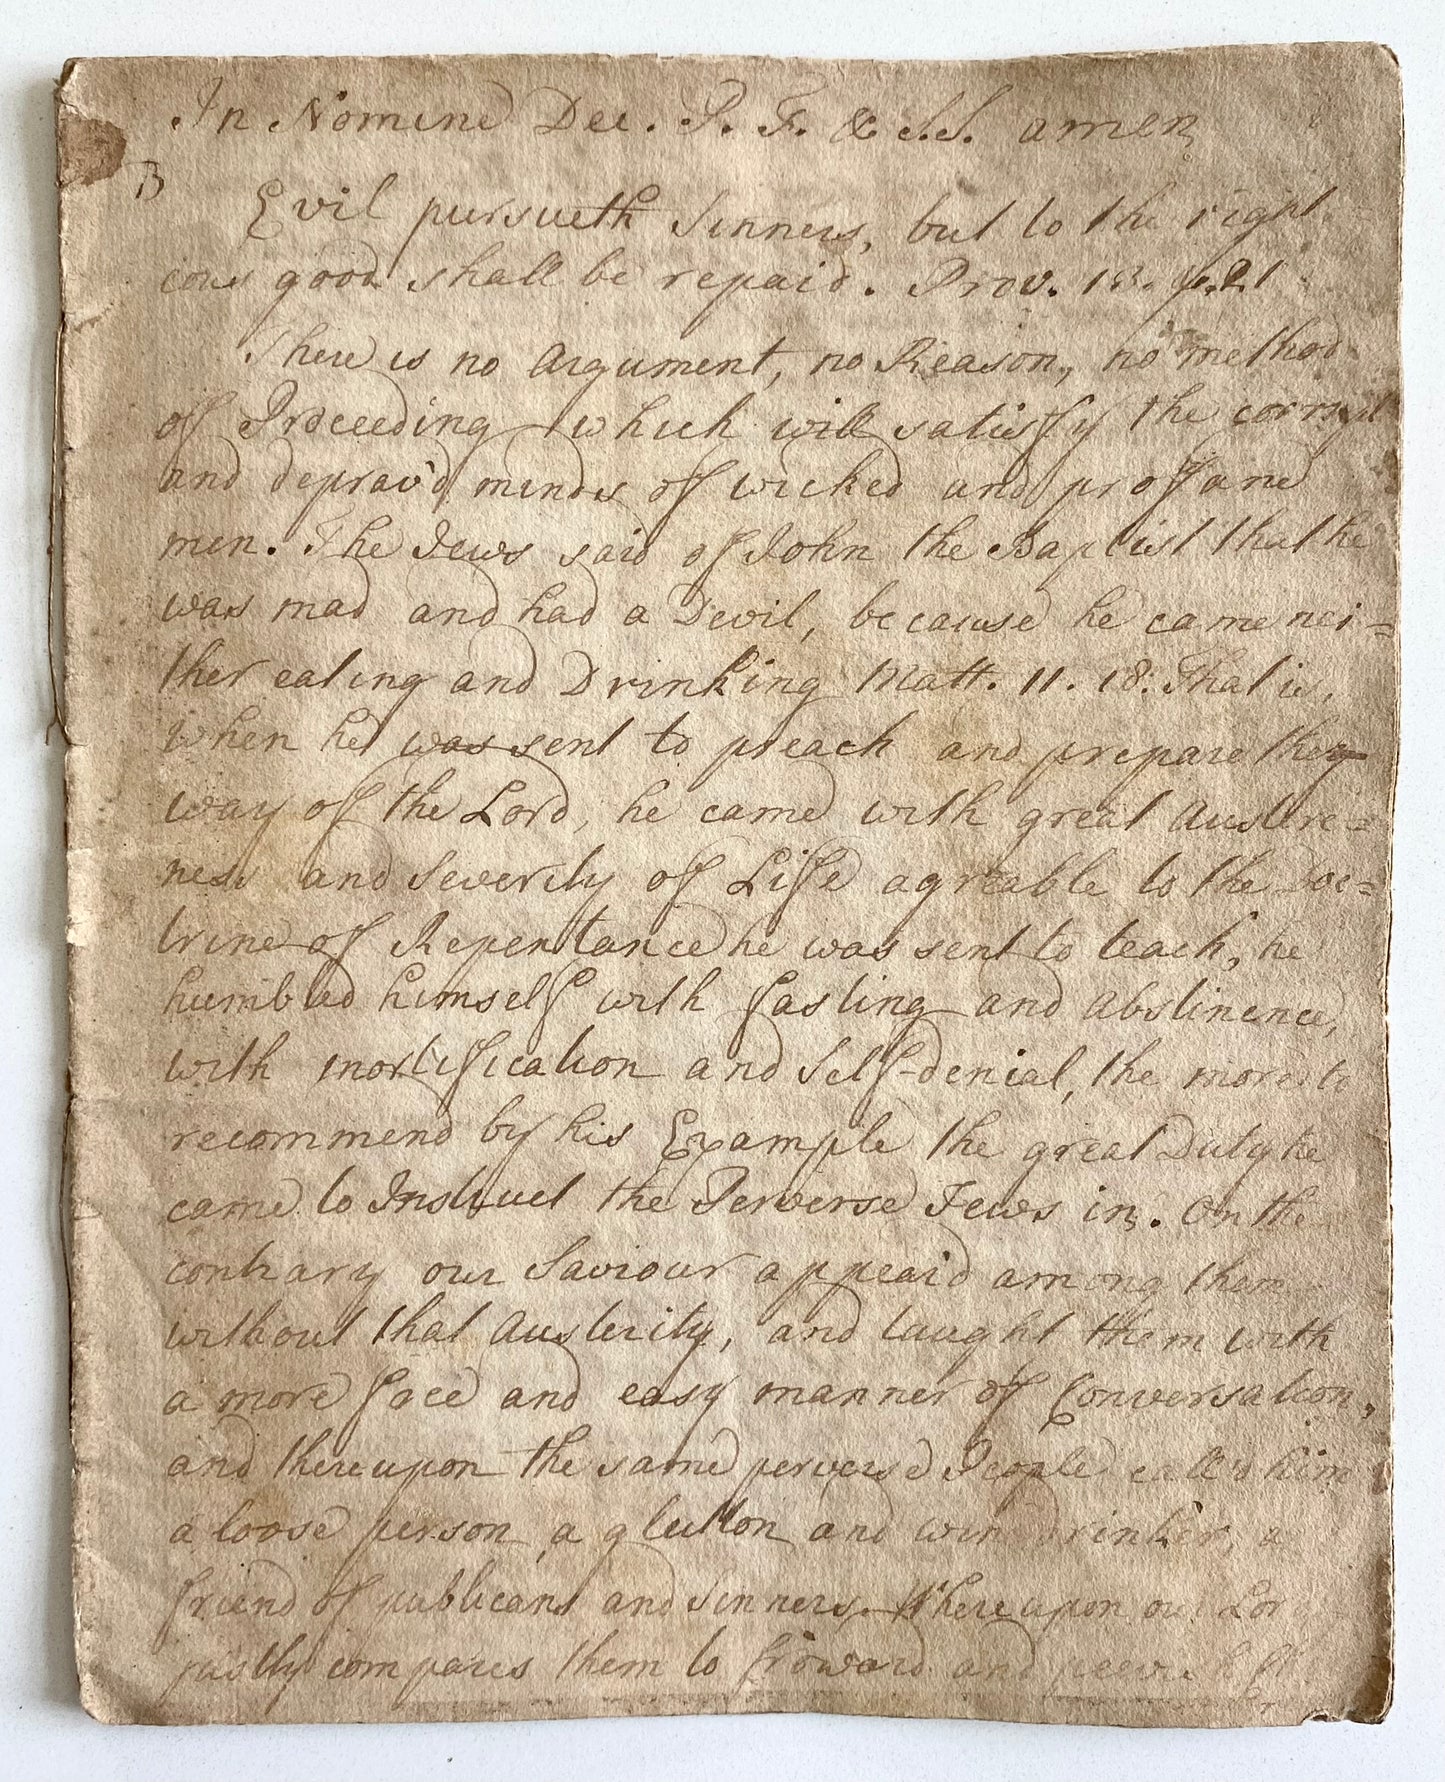 In Nomine Dei. P. F. & S.S. amen
B
Evil pursueth Sinners, but to the right=
eous good shall be repaid. Prov. 13. v. 21
There is no Argument, no Reason, no method
of Proceeding which will satisfy the corrupt
and deprav'd minds of wicked and proffane
men. The Jews said of John the Baptist that he
was mad and had a Devil, because he came nei=
ther eating and Drinking Matt. 11. 18. That is,
when he was sent to preach and prepare the
way of the Lord, he came with great Austere=
ness and Severity of Life agreable to the Doc=
trine of Repentance he was sent to teach, he
humbled himself with fasting and Abstinence,
with mortification and Self-denial, the more to
recommend by his Example the great Duty he
came to Instruct the Perverse Jews in. On the
contrary our Saviour appear'd among them
without that Austerity, and taught them with
a more free and easy manner of Conversation,
and thereupon the same perverse People call'd him
a loose person, a glutton and wine drinker, a
friend of publicans and Sinners. Whereupon our Lord
justly compares them to froward and peevish